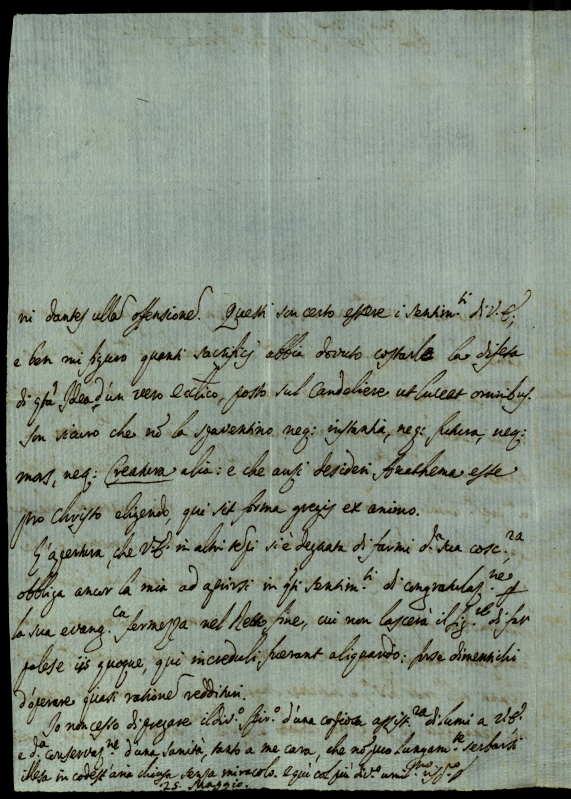 ni dantes ullã offensionẽ. Questi son certo essere i sentim.ti di V. E,
e ben mi figuro quanti sacrificj abbia dovuto costarle la difesa
di qta Idea d'un vero ecclico, posto sul Candeliere ut luceat omnibus.
Son sicuro che nõ la spaventino neq: instantia, neq: futura, neq:
mors, neq: Creatura alia: e che anzi desideri Anathema esse
pro Christo eligendo, qui sit forma gregis ex animo.
L'apertura, che V. E. in altri tẽpi si è degnata di farmi d.a sua cosc.za
obbliga ancor la mia ad aprirsi in qti sentim.ti di congratulaz.ne
la sua evang.ca fermezza nel fine, cui non lascerà il Sig.re di far
palese iis quoque, qui increduli fuerant aliquando: forse dimentichi
d'operare quasi rationẽ reddituri.
Io non cesso di pregare il div.o d'una copiosa assist.za di lumi a V. E.
e d.a conservaz.ne d'una sanità, tanto a me cara, che nõ può lungam.te serbarsi
illesa in codest'aria chiusa senza miracolo. e qui col più div.o
25. Maggio.